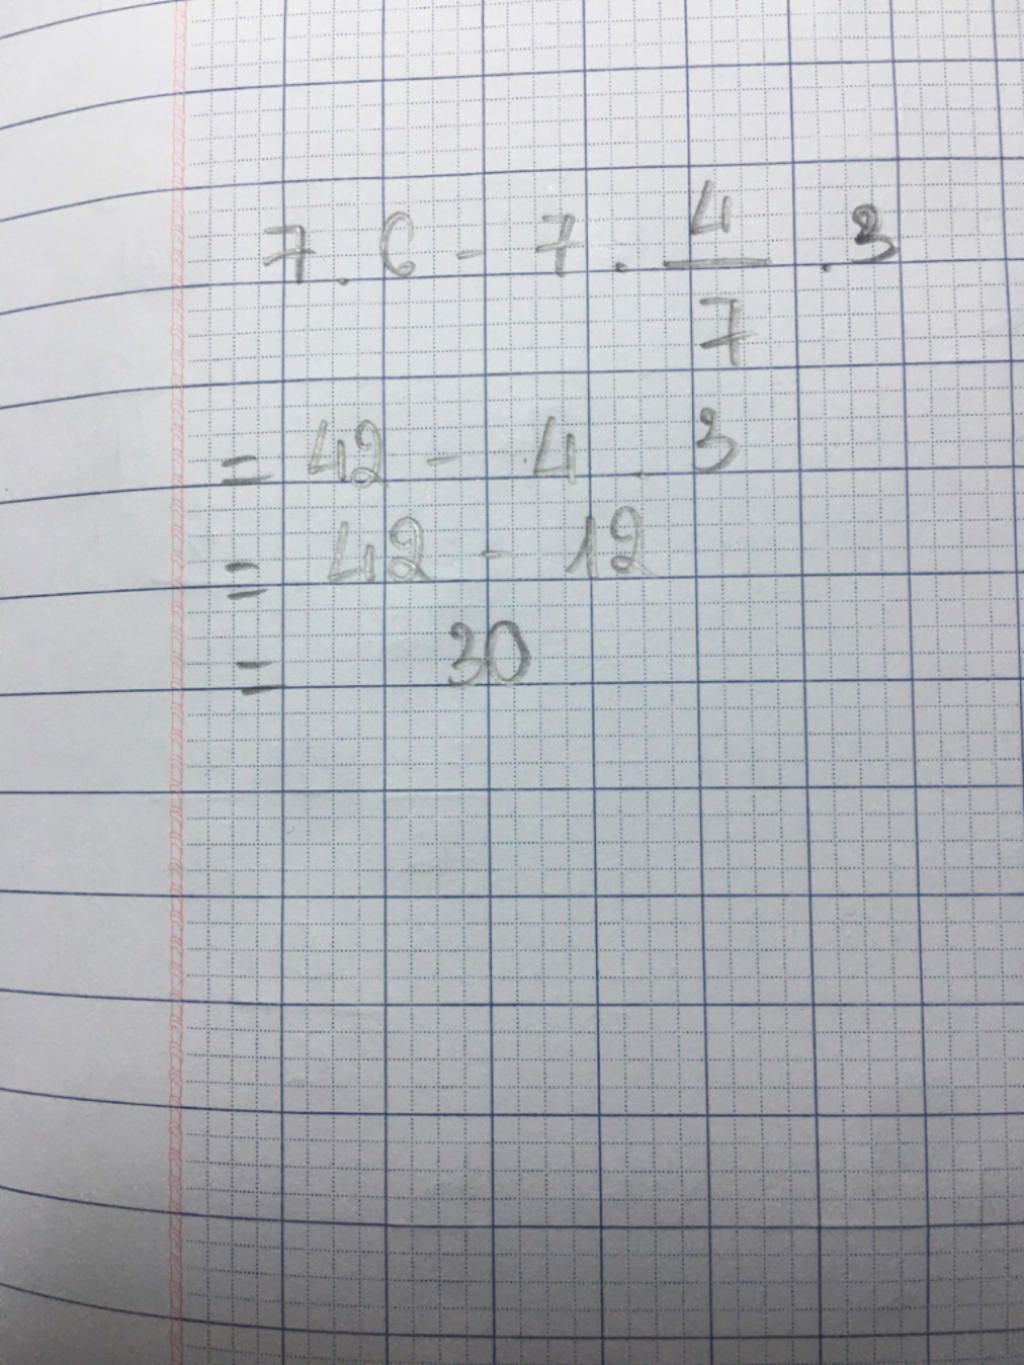 7 . 6 - 7 . 4/7 . 3
= 42 - 4 . 3
= 42 - 12
= 30